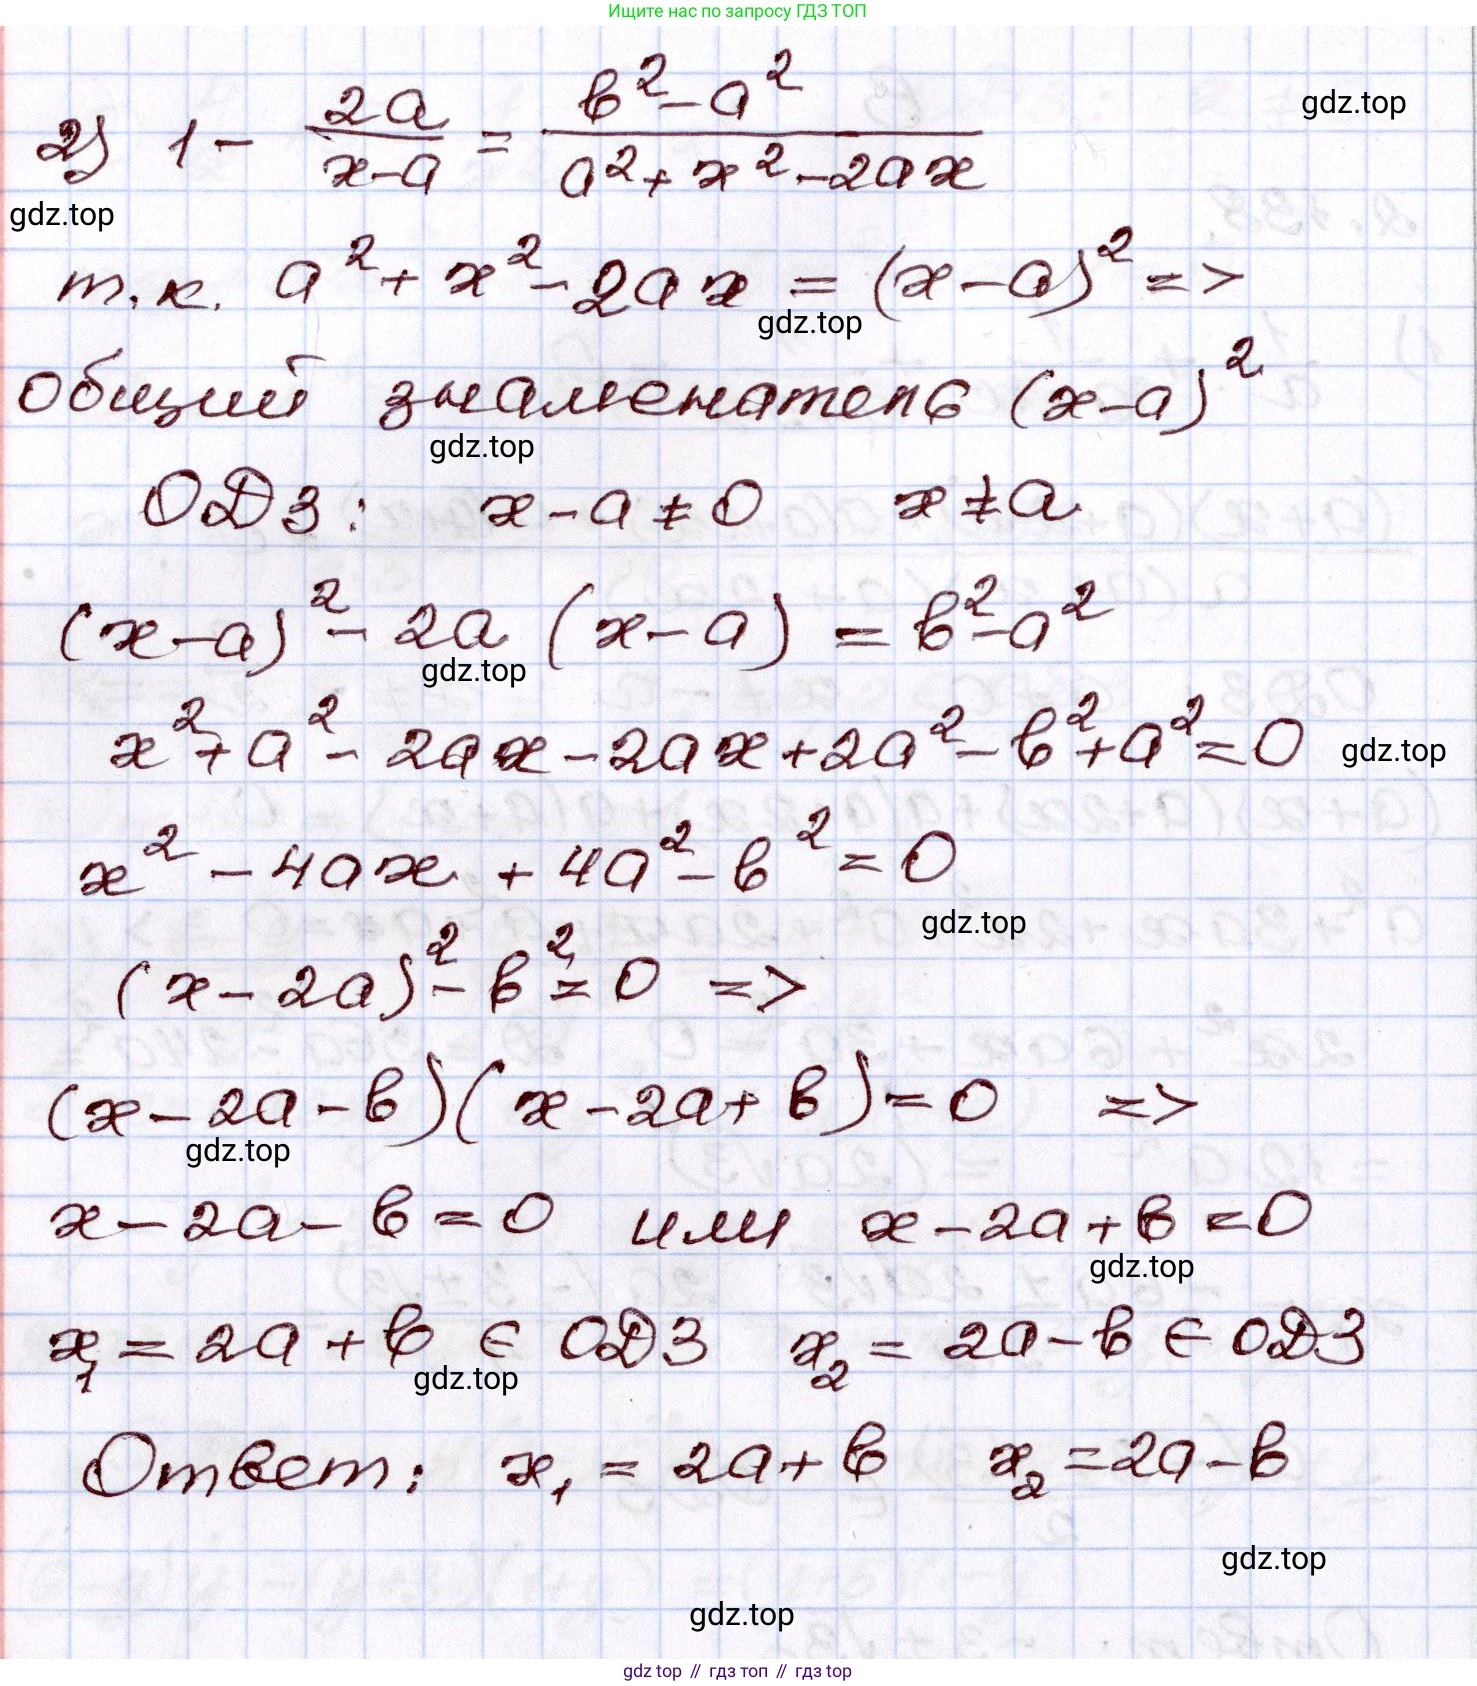 Ищите нас по запросу ГДЗ ТОП
2) 1 - 2a/(x-a) = (b² - a²)/(a² + x² - 2ax)
gdz.top
gdz.top
т.к. a² + x² - 2ax = (x-a)² =>
gdz.top
общий знаменатель (x-a)²
gdz.top
ОДЗ: x-a≠0 x≠a
(x-a)² - 2a(x-a) = b² - a²
gdz.top
x² + a² - 2ax - 2ax + 2a² - b² + a² = 0
gdz.top
x² - 4ax + 4a² - b² = 0
gdz.top
(x-2a)² - b² = 0 =>
(x-2a-b)(x-2a+b) = 0 =>
gdz.top
x-2a-b=0 или x-2a+b=0
gdz.top
x₁ = 2a+b ∈ ОДЗ x₂ = 2a-b ∈ ОДЗ
gdz.top
Ответ: x₁ = 2a+b x₂ = 2a-b
gdz.top
gdz.top
gdz top // гдз топ // гдз top